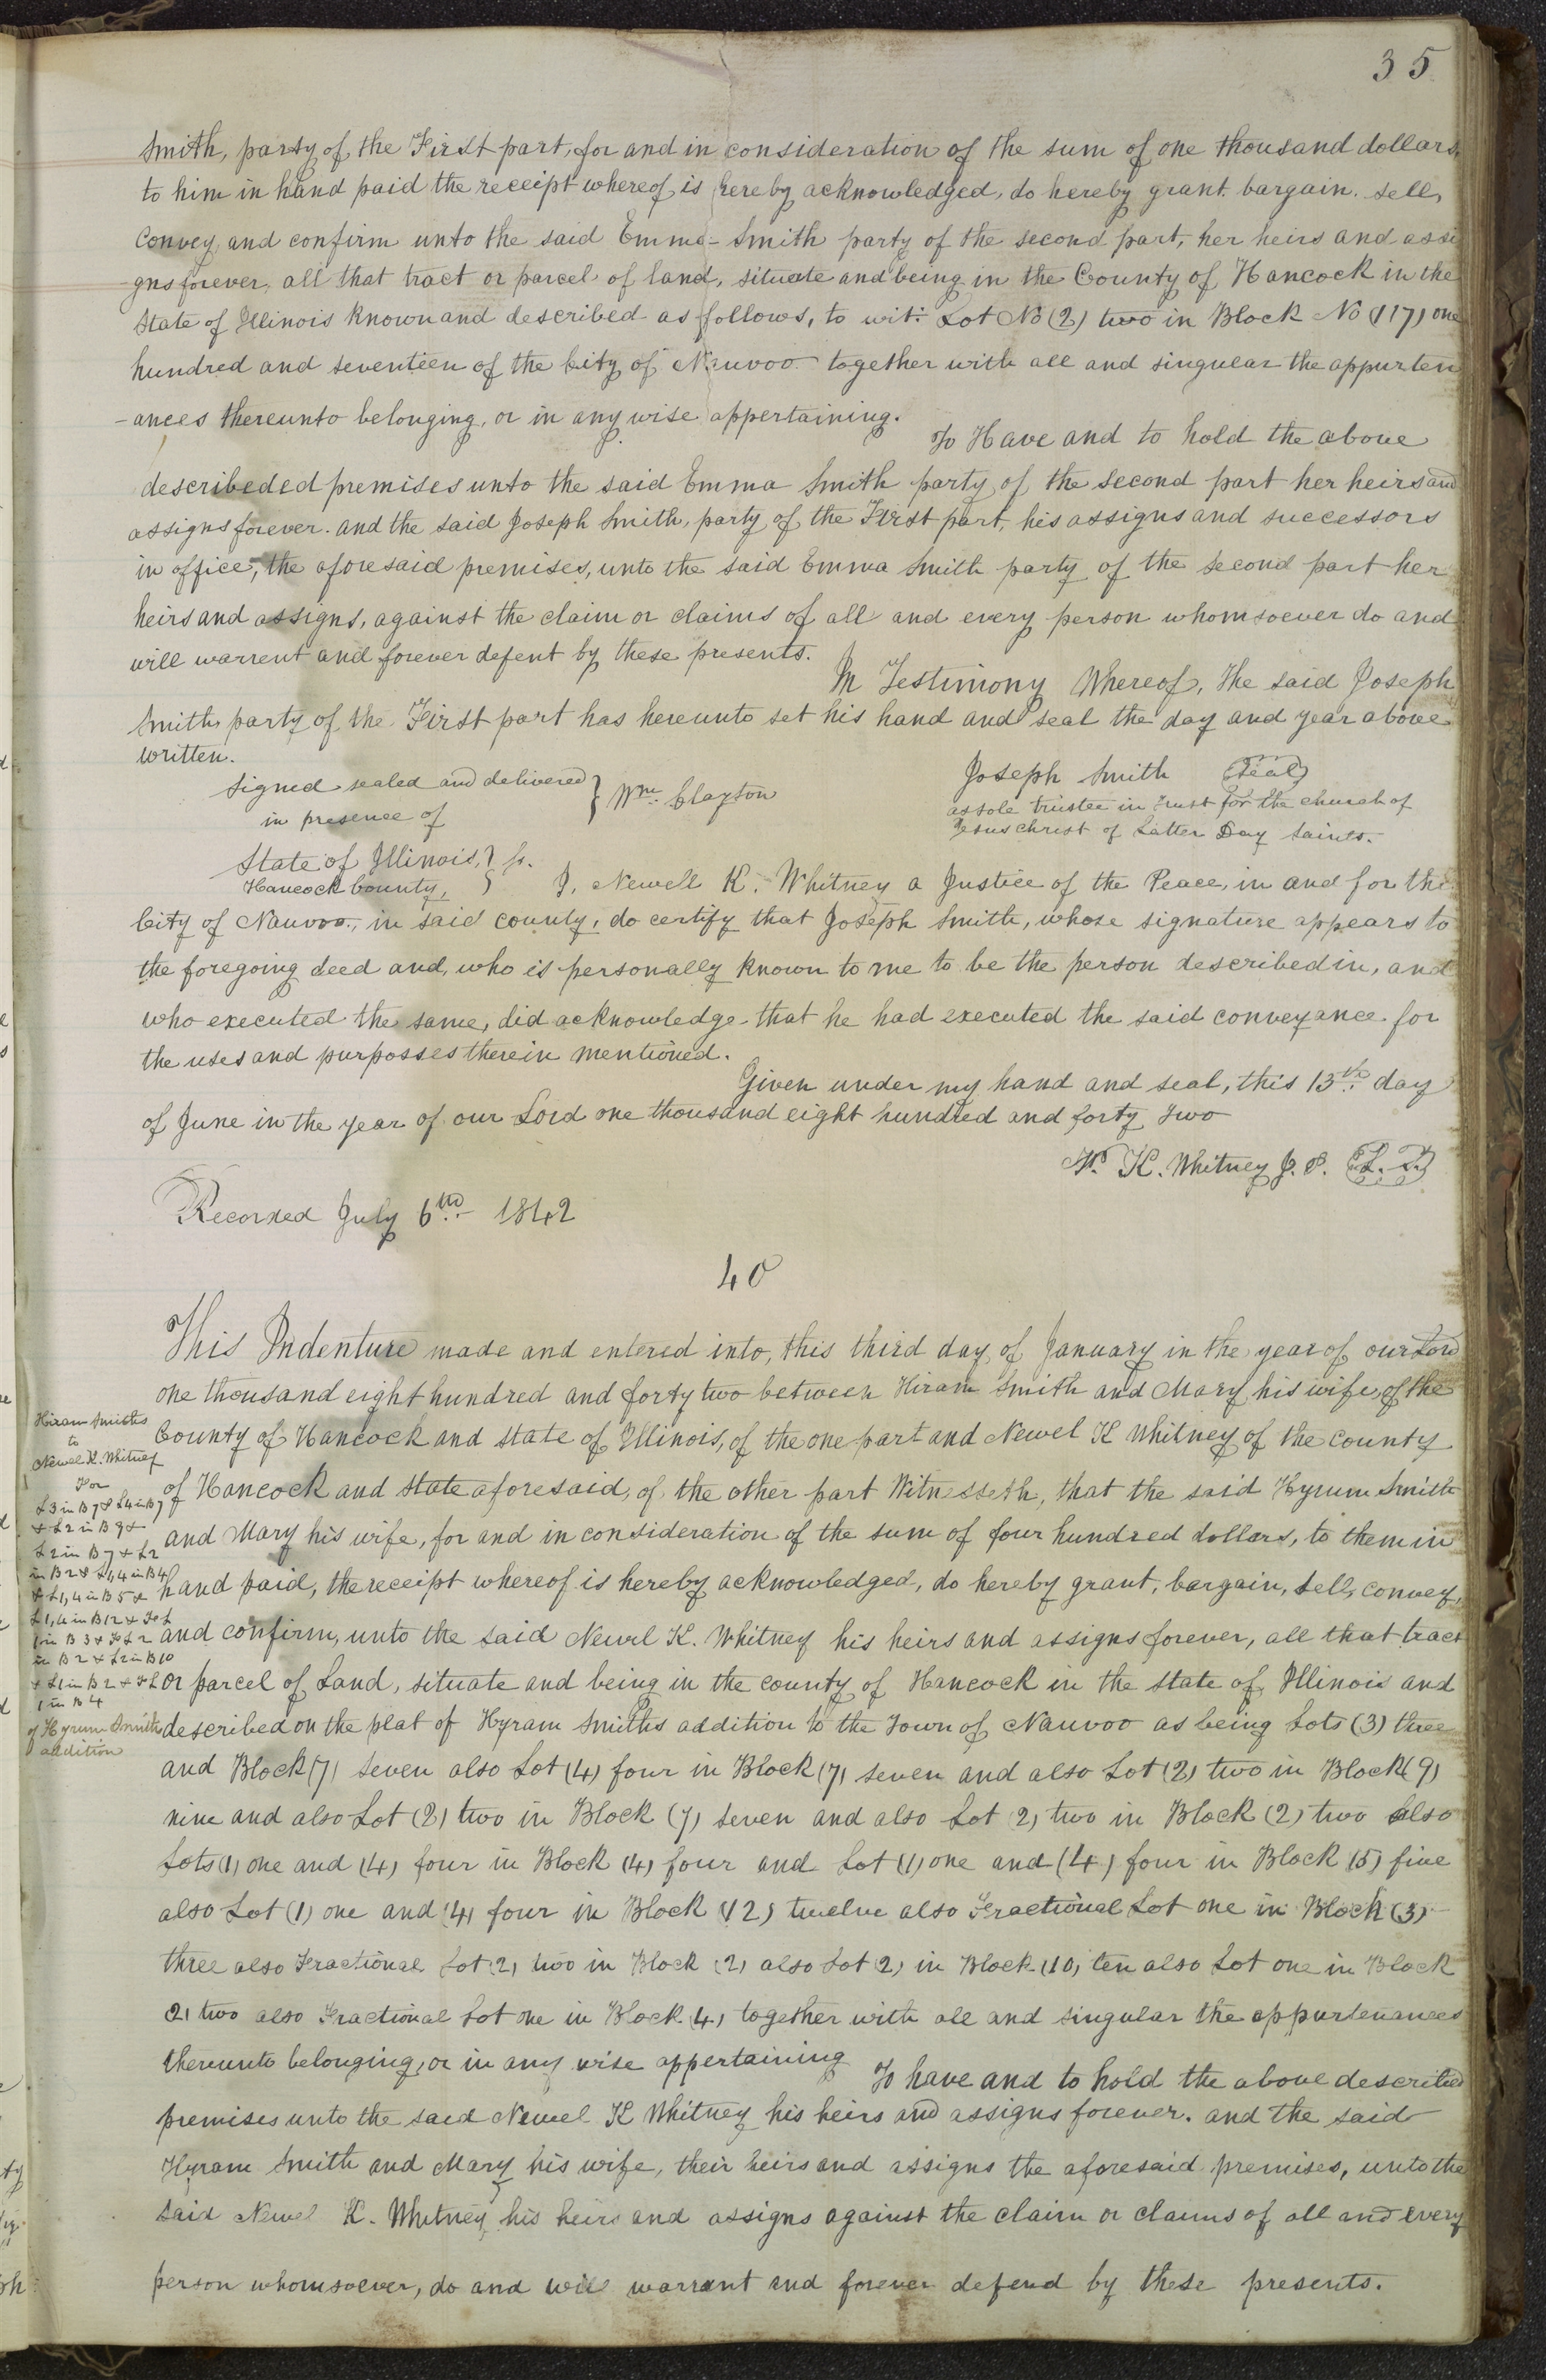 35
Smith, party of the First part, for and in consideration of the sum of one thousand dollars,
to him in hand paid the receipt whereof is hereby acknowledged, do hereby grant. bargain. sell,
Convey and confirm unto the said Emma Smith party of the second part, her heirs and assi
-gns forever, all that tract or parcel of land, situate and being in the County of Hancock in the
State of Illinois known and described as follows, to wit: Lot No (2) two in Block No (117) one
hundred and seventeen of the City of Nauvoo together with all and singular the appurten
-ances thereunto belonging, or in any wise appertaining.
To Have and to hold the above
describeded premises unto the said Emma Smith party of the second part her heirs and
assigns forever. and the said Joseph Smith, party of the First part, his assigns and successors
in office, the aforesaid premises, unto the said Emma Smith party of the second part her
heirs and assigns, against the claim or claims of all and every person whomsoever do and
will warrent and forever defent by these presents.
In Testimony Whereof, The said Joseph
Smith party of the First part has hereunto set his hand and seal the day and year above
written.
Signed sealed and delivered } Wm. Clayton
in presence of
Joseph Smith (Seal)
as sole trustee in trust for the church of
Jesus christ of Latter Day Saints.
State of Illinois, } ss.
Hancock County, }
I, Newell K. Whitney a Justice of the Peace, in and for the
City of Nauvoo, in said county, do certify that Joseph Smith, whose signature appears to
the foregoing deed and, who is personally known to me to be the person described in, and
who executed the same, did acknowledge that he had executed the said conveyance for
the uses and purposses therein mentioned.
Given under my hand and seal, this 13th day
of June in the year of our Lord one thousand eight hundred and forty two
N. K. Whitney J. P. (L. S.)
Recorded July 6th 1842
40
This Indenture made and entered into, this third day of January in the year of our Lord
one thousand eight hundred and forty two between Hiram Smith and Mary his wife, of the
County of Hancock and State of Illinois, of the one part and Newel K Whitney of the County
of Hancock and State aforesaid, of the other part Witnesseth, that the said Hyrum Smith
and Mary his wife, for and in consideration of the sum of four hundred dollars, to them in
hand paid, the receipt whereof is hereby acknowledged, do hereby grant, bargain, sell, convey,
and confirm, unto the said Newel K. Whitney his heirs and assigns forever, all that tract
or parcel of Land, situate and being in the county of Hancock in the state of Illinois and
described on the plat of Hyram Smiths addition to the Town of Nauvoo as being Lots (3) three
and Block (7) seven also Lot (4) four in Block (7) seven and also Lot (2) two in Block (9)
nine and also Lot (2) two in Block (7) seven and also Lot (2) two in Block (2) two also
Lots (1) one and (4) four in Block (4) four and Lot (1) one and (4) four in Block (5) five
also Lot (1) one and (4) four in Block (12) twelve also Fractional Lot one in Block (3)
three also Fractional Lot (2) two in Block (2) also Lot (2) in Block (10) ten also Lot one in Block
2) two also Fractional Lot one in Block (4) together with all and singular the appurtenances
thereunto belonging, or in any wise appertaining
To have and to hold the above described
premises unto the said Newel K Whitney his heirs and assigns forever. and the said
Hyram Smith and Mary his wife, their heirs and assigns the aforesaid premises, unto the
said Newel K. Whitney his heirs and assigns against the claim or claims of all and every
person whomsoever, do and will warrant and forever defend by these presents.
Hiram Smiths
to
Newel K. Whitney
For
L3 in B7 & L4 in B7
& L2 in B9 &
L2 in B7 & L2
in B2 & L1,4 in B4
& L1,4 in B5 &
L1,4 in B12 & Fr L
1 in B3 & Fr L2
in B2 & L2 in B10
& L1 in B2 & Fr L
1 in B4
of Hyrum Smith
addition